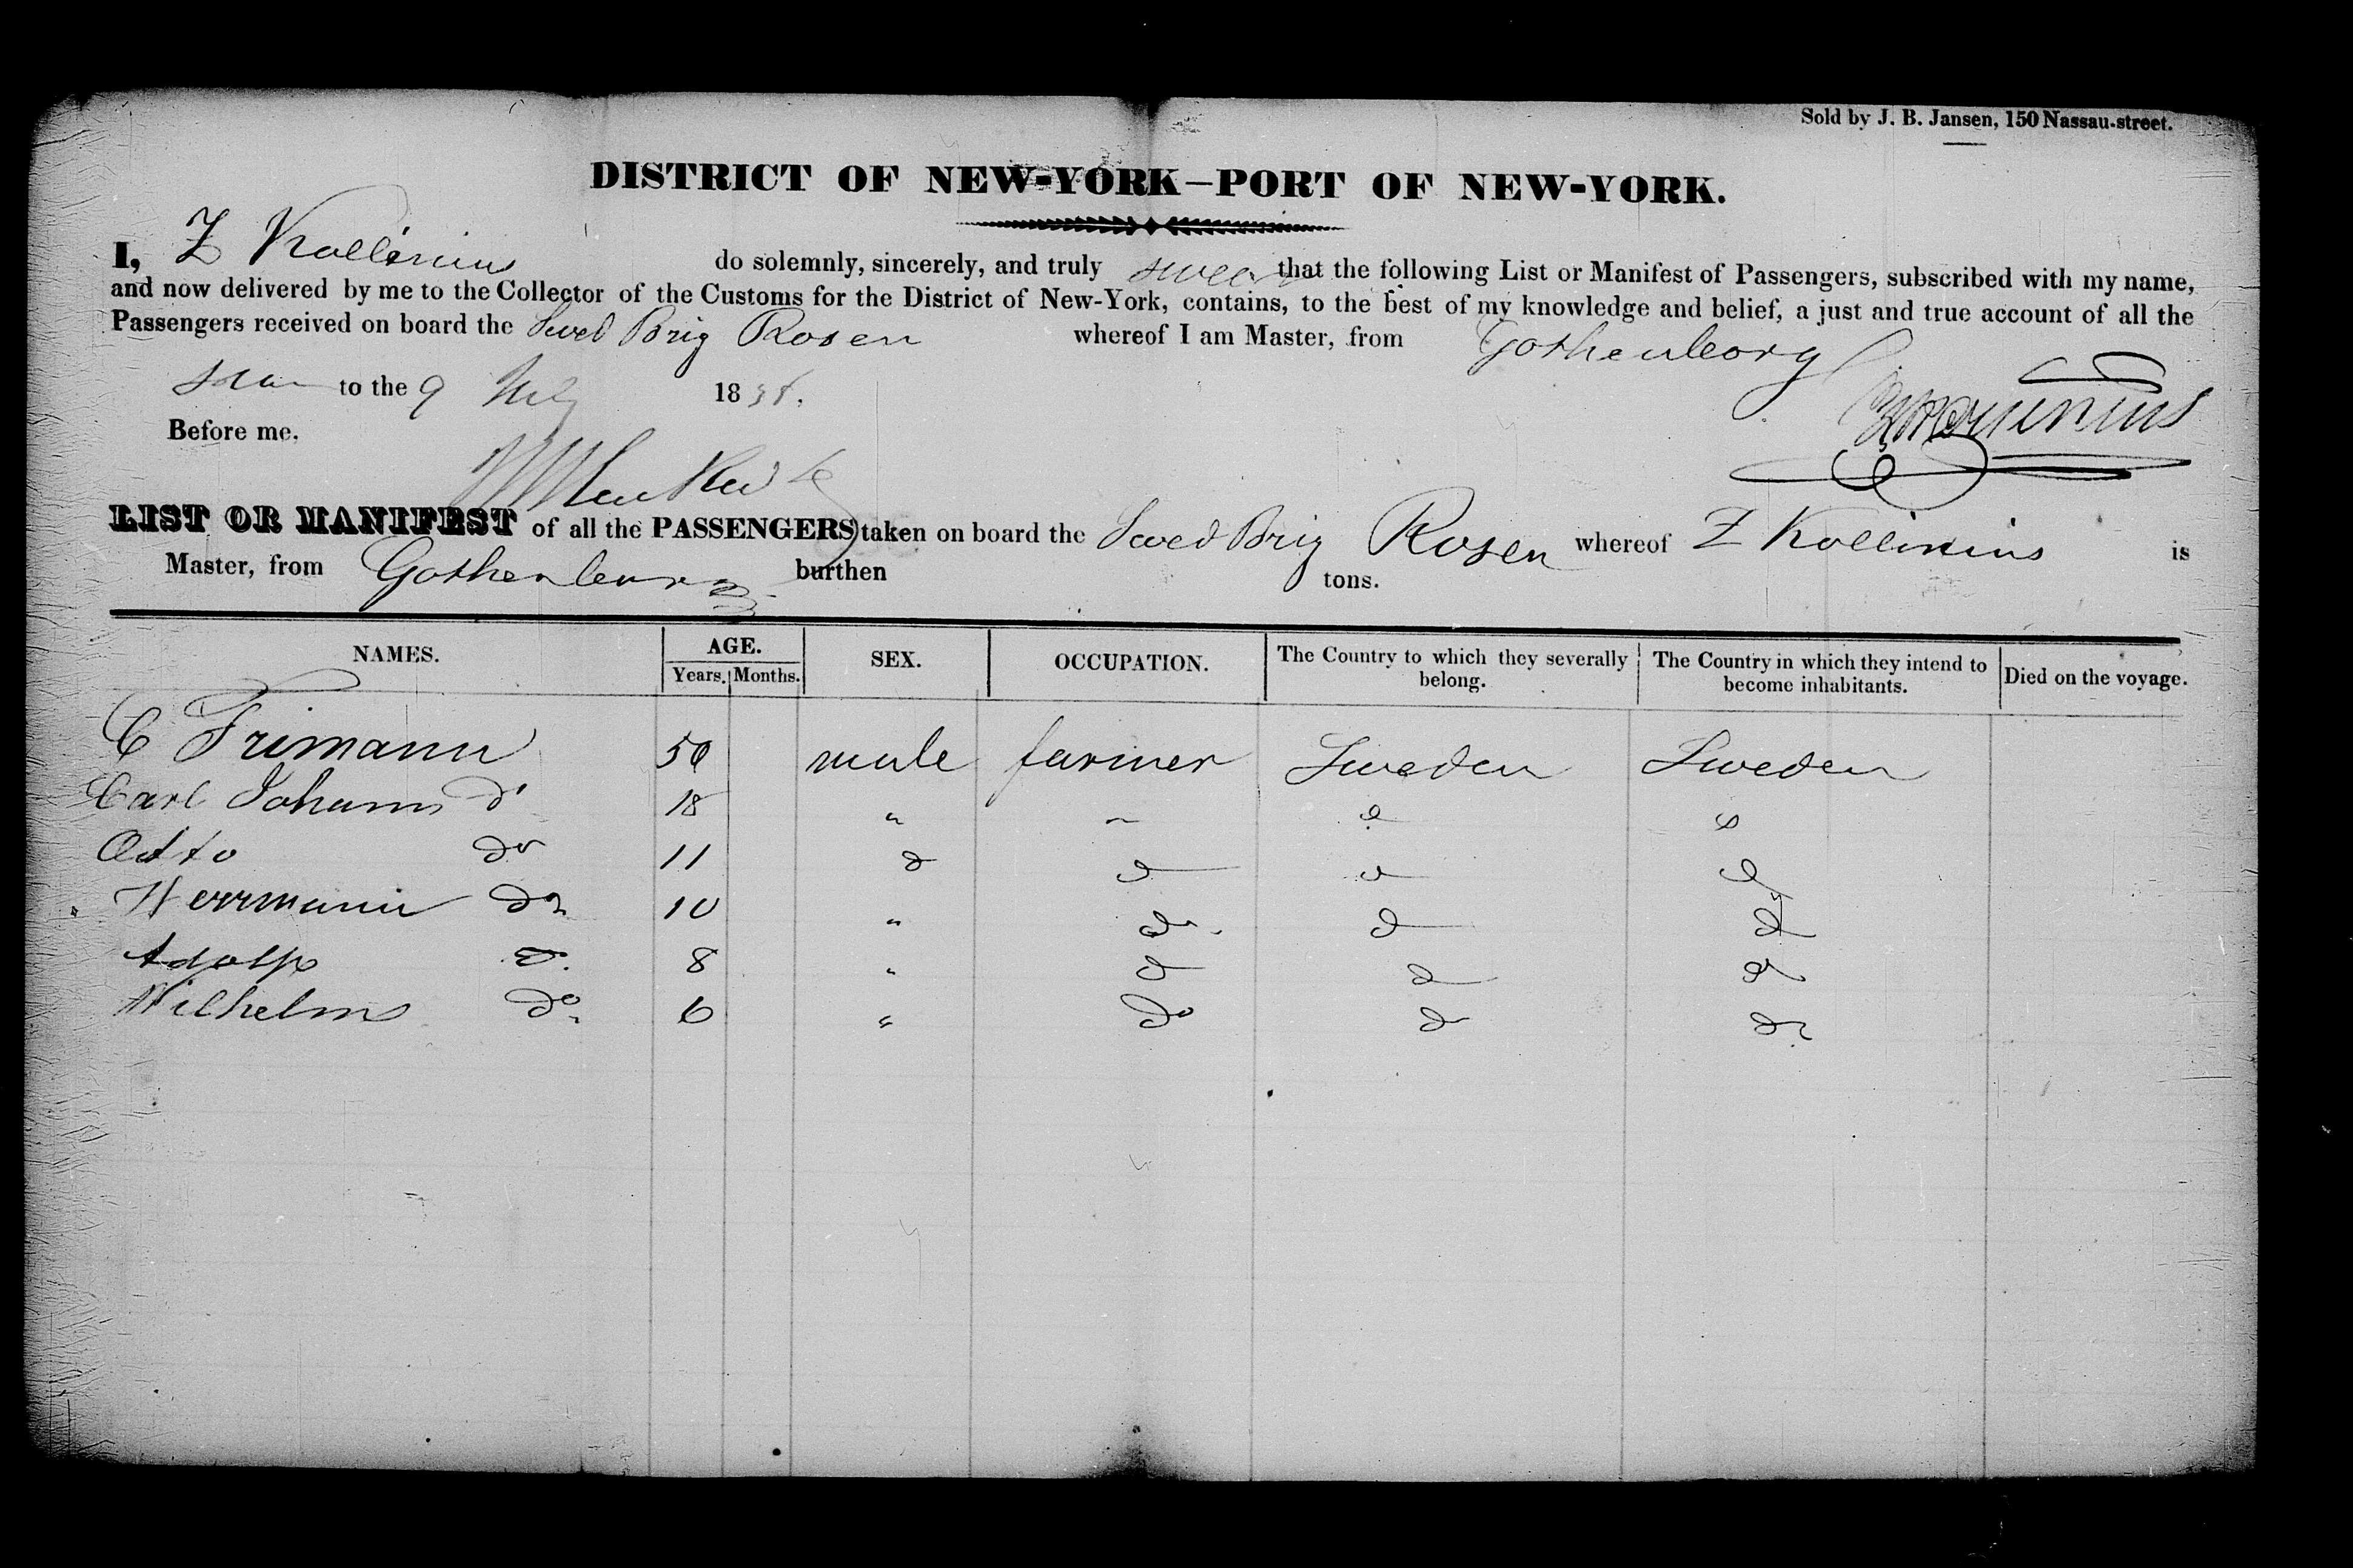 Sold by J. B. Jansen, 150 Nassau-street.
DISTRICT OF NEW-YORK—PORT OF NEW-YORK.
I, Z Kollinius do solemnly, sincerely, and truly swear that the following List or Manifest of Passengers, subscribed with my name,
and now delivered by me to the Collector of the Customs for the District of New-York, contains, to the best of my knowledge and belief, a just and true account of all the
Passengers received on board the Swed Brig Rosen whereof I am Master, from Gothenborg
to the 9 18
Before me.
LIST OR MANIFEST of all the PASSENGERS taken on board the Swed Brig Rosen whereof Z Kollinius is
Master, from Gothenburg burthen tons.
NAMES. AGE. SEX. OCCUPATION. The Country to which they severally belong. The Country in which they intend to become inhabitants. Died on the voyage.
Years. Months.
C Frimann 50 male farmer Sweden Sweden
Carl Johann do 18 " " do do
Otto do 11 do do do do
Herrmann do 10 " do do do
Adolph do 8 " do do do
Wilhelm do 6 " do do do